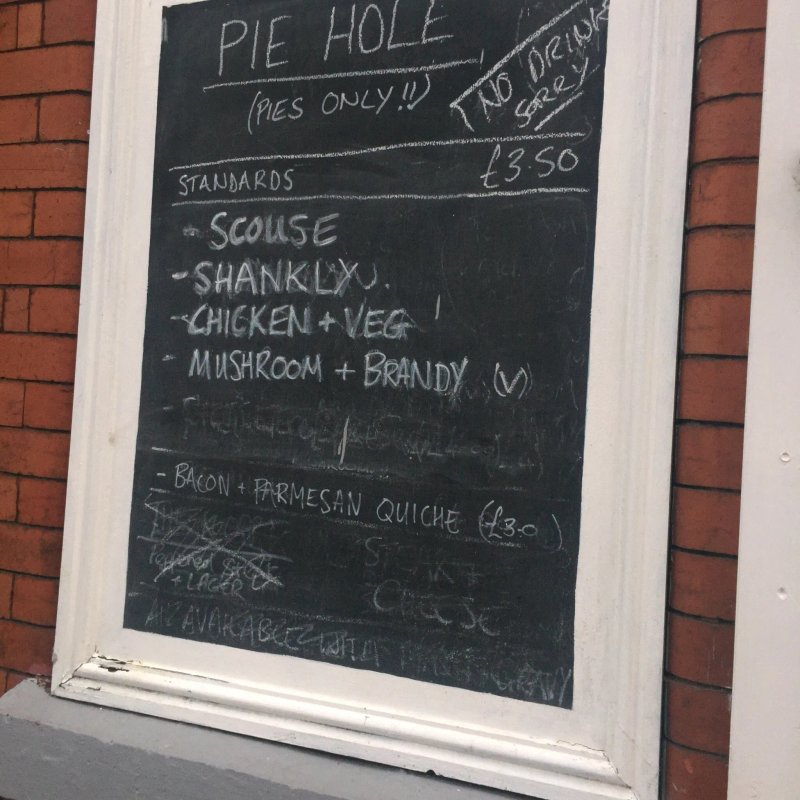 PIE HOLE
(PIES ONLY!!)
NO DRINKS
SORRY
STANDARDS £3.50
- SCOUSE
- SHANKLY
- CHICKEN + VEG
- MUSHROOM + BRANDY (V)
- BACON + PARMESAN QUICHE (£3.0 )
+ LAGER
CHEESE